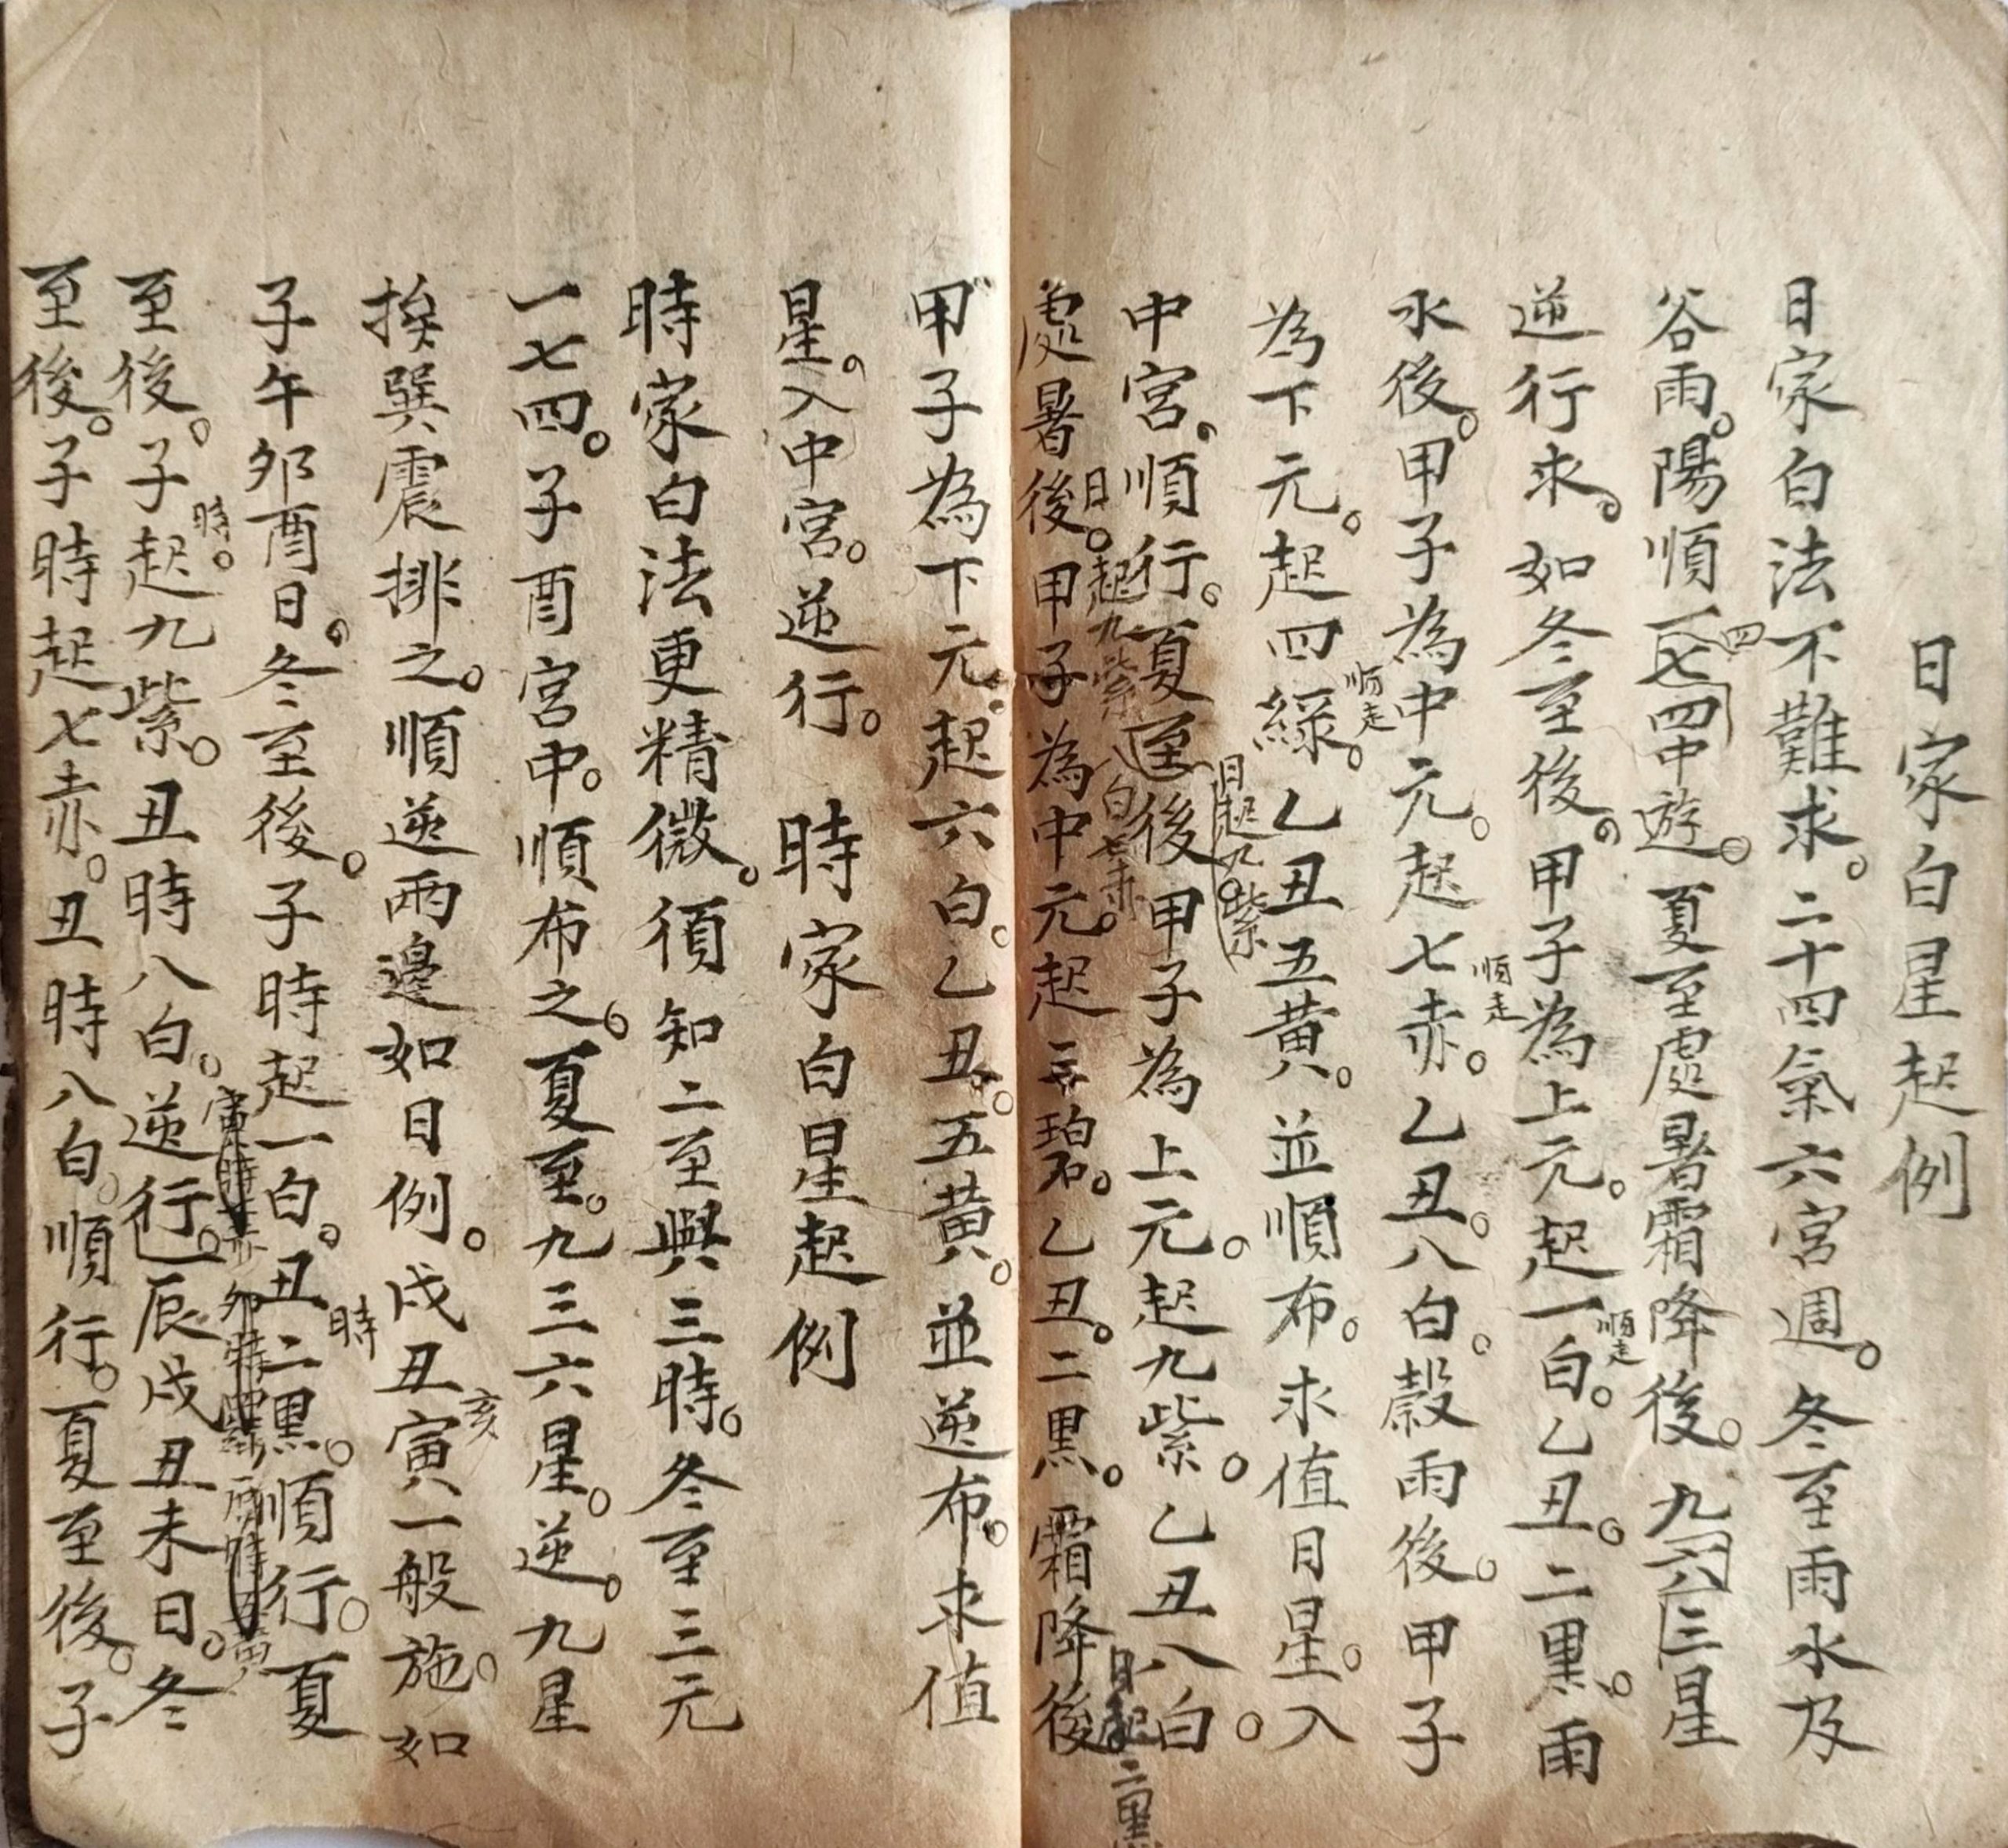 日家白星起例
日家白法不難求。二十四氣六宮週。冬至雨水及
谷雨。陽順一七四中遊。夏至處暑霜降後。九六三星
四
逆行求。如冬至後。甲子為上元。起一白。乙丑。二黑。雨
順走
水後。甲子為中元。起七赤。乙丑。八白。穀雨後。甲子
順走
為下元。起四綠。乙丑五黃。並順布。求值日星。入
順走
中宮。順行。夏至後甲子為上元。起九紫。乙丑八白。
日起九紫
處暑後。甲子為中元。起三碧。乙丑。二黑。霜降後
日起九紫
白七赤
日起二黑
甲子為下元。起六白。乙丑。五黃。並逆布。求值
星。入中宮。逆行。 時家白星起例
時家白法更精微。須知二至與三時。冬至三元
一七四。子酉宮中。順布之。夏至。九三六星。逆。九星
挨巽震排之。順逆兩邊如日例。戌丑寅一般施。如
亥
子午卯酉日。冬至後。子時起一白。丑二黑。順行。夏
時
至後。子起九紫。丑時八白。逆行。辰戌丑未日。冬
時。
至後。子時起七赤。丑時八白。順行。夏至後。子